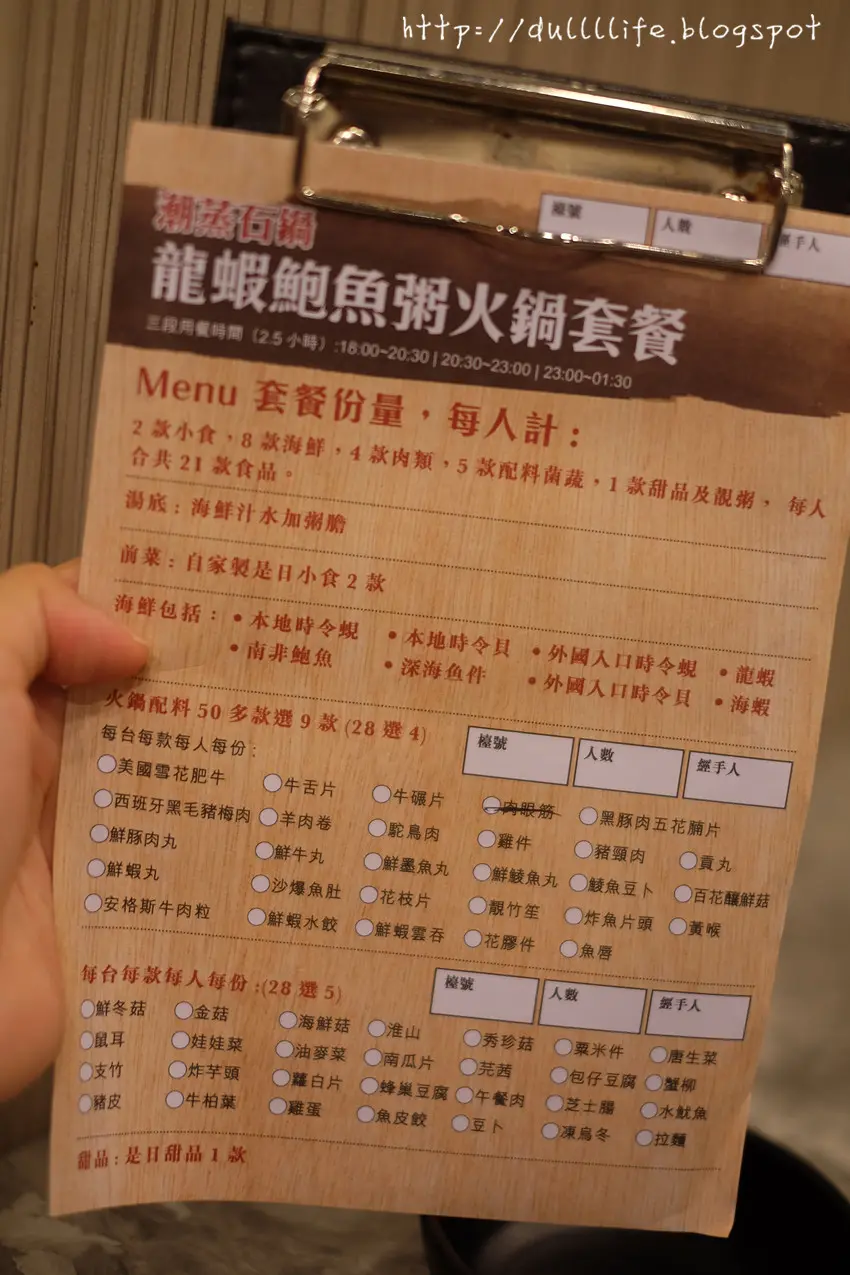 http://dullllife.blogspot
潮蒸石鍋
檯號 人數 經手人
龍蝦鮑魚粥火鍋套餐
三段用餐時間（2.5 小時）:18:00~20:30 | 20:30~23:00 | 23:00~01:30
Menu 套餐份量，每人計：
2 款小食，8 款海鮮，4 款肉類，5 款配料菌蔬，1 款甜品及靚粥， 每人
合共 21 款食品。
湯底：海鮮汁水加粥膽
前菜：自家製是日小食 2 款
海鮮包括： •本地時令蜆 •本地時令貝 •外國入口時令蜆 •龍蝦
•南非鮑魚 •深海魚件 •外國入口時令貝 •海蝦
火鍋配料 50 多款選 9 款 (28 選 4)
檯號 人數 經手人
每台每款每人每份：
美國雪花肥牛 牛舌片 牛碾片 肉眼筋 黑豚肉五花腩片
西班牙黑毛豬梅肉 羊肉卷 鴕鳥肉 雞件 豬頸肉 貢丸
鮮豚肉丸 鮮牛丸 鮮墨魚丸 鮮鯪魚丸 鯪魚豆卜 百花釀鮮菇
鮮蝦丸 沙爆魚肚 花枝片 靚竹笙 炸魚片頭 黃喉
安格斯牛肉粒 鮮蝦水餃 鮮蝦雲吞 花膠件 魚唇
每台每款每人每份 :(28 選 5)
檯號 人數 經手人
鮮冬菇 金菇 海鮮菇 淮山 秀珍菇 粟米件 唐生菜
鼠耳 娃娃菜 油麥菜 南瓜片 芫茜 包仔豆腐 蟹柳
支竹 炸芋頭 蘿白片 蜂巢豆腐 午餐肉 芝士腸 水魷魚
豬皮 牛柏葉 雞蛋 魚皮餃 豆卜 凍烏冬 拉麵
甜品：是日甜品 1 款